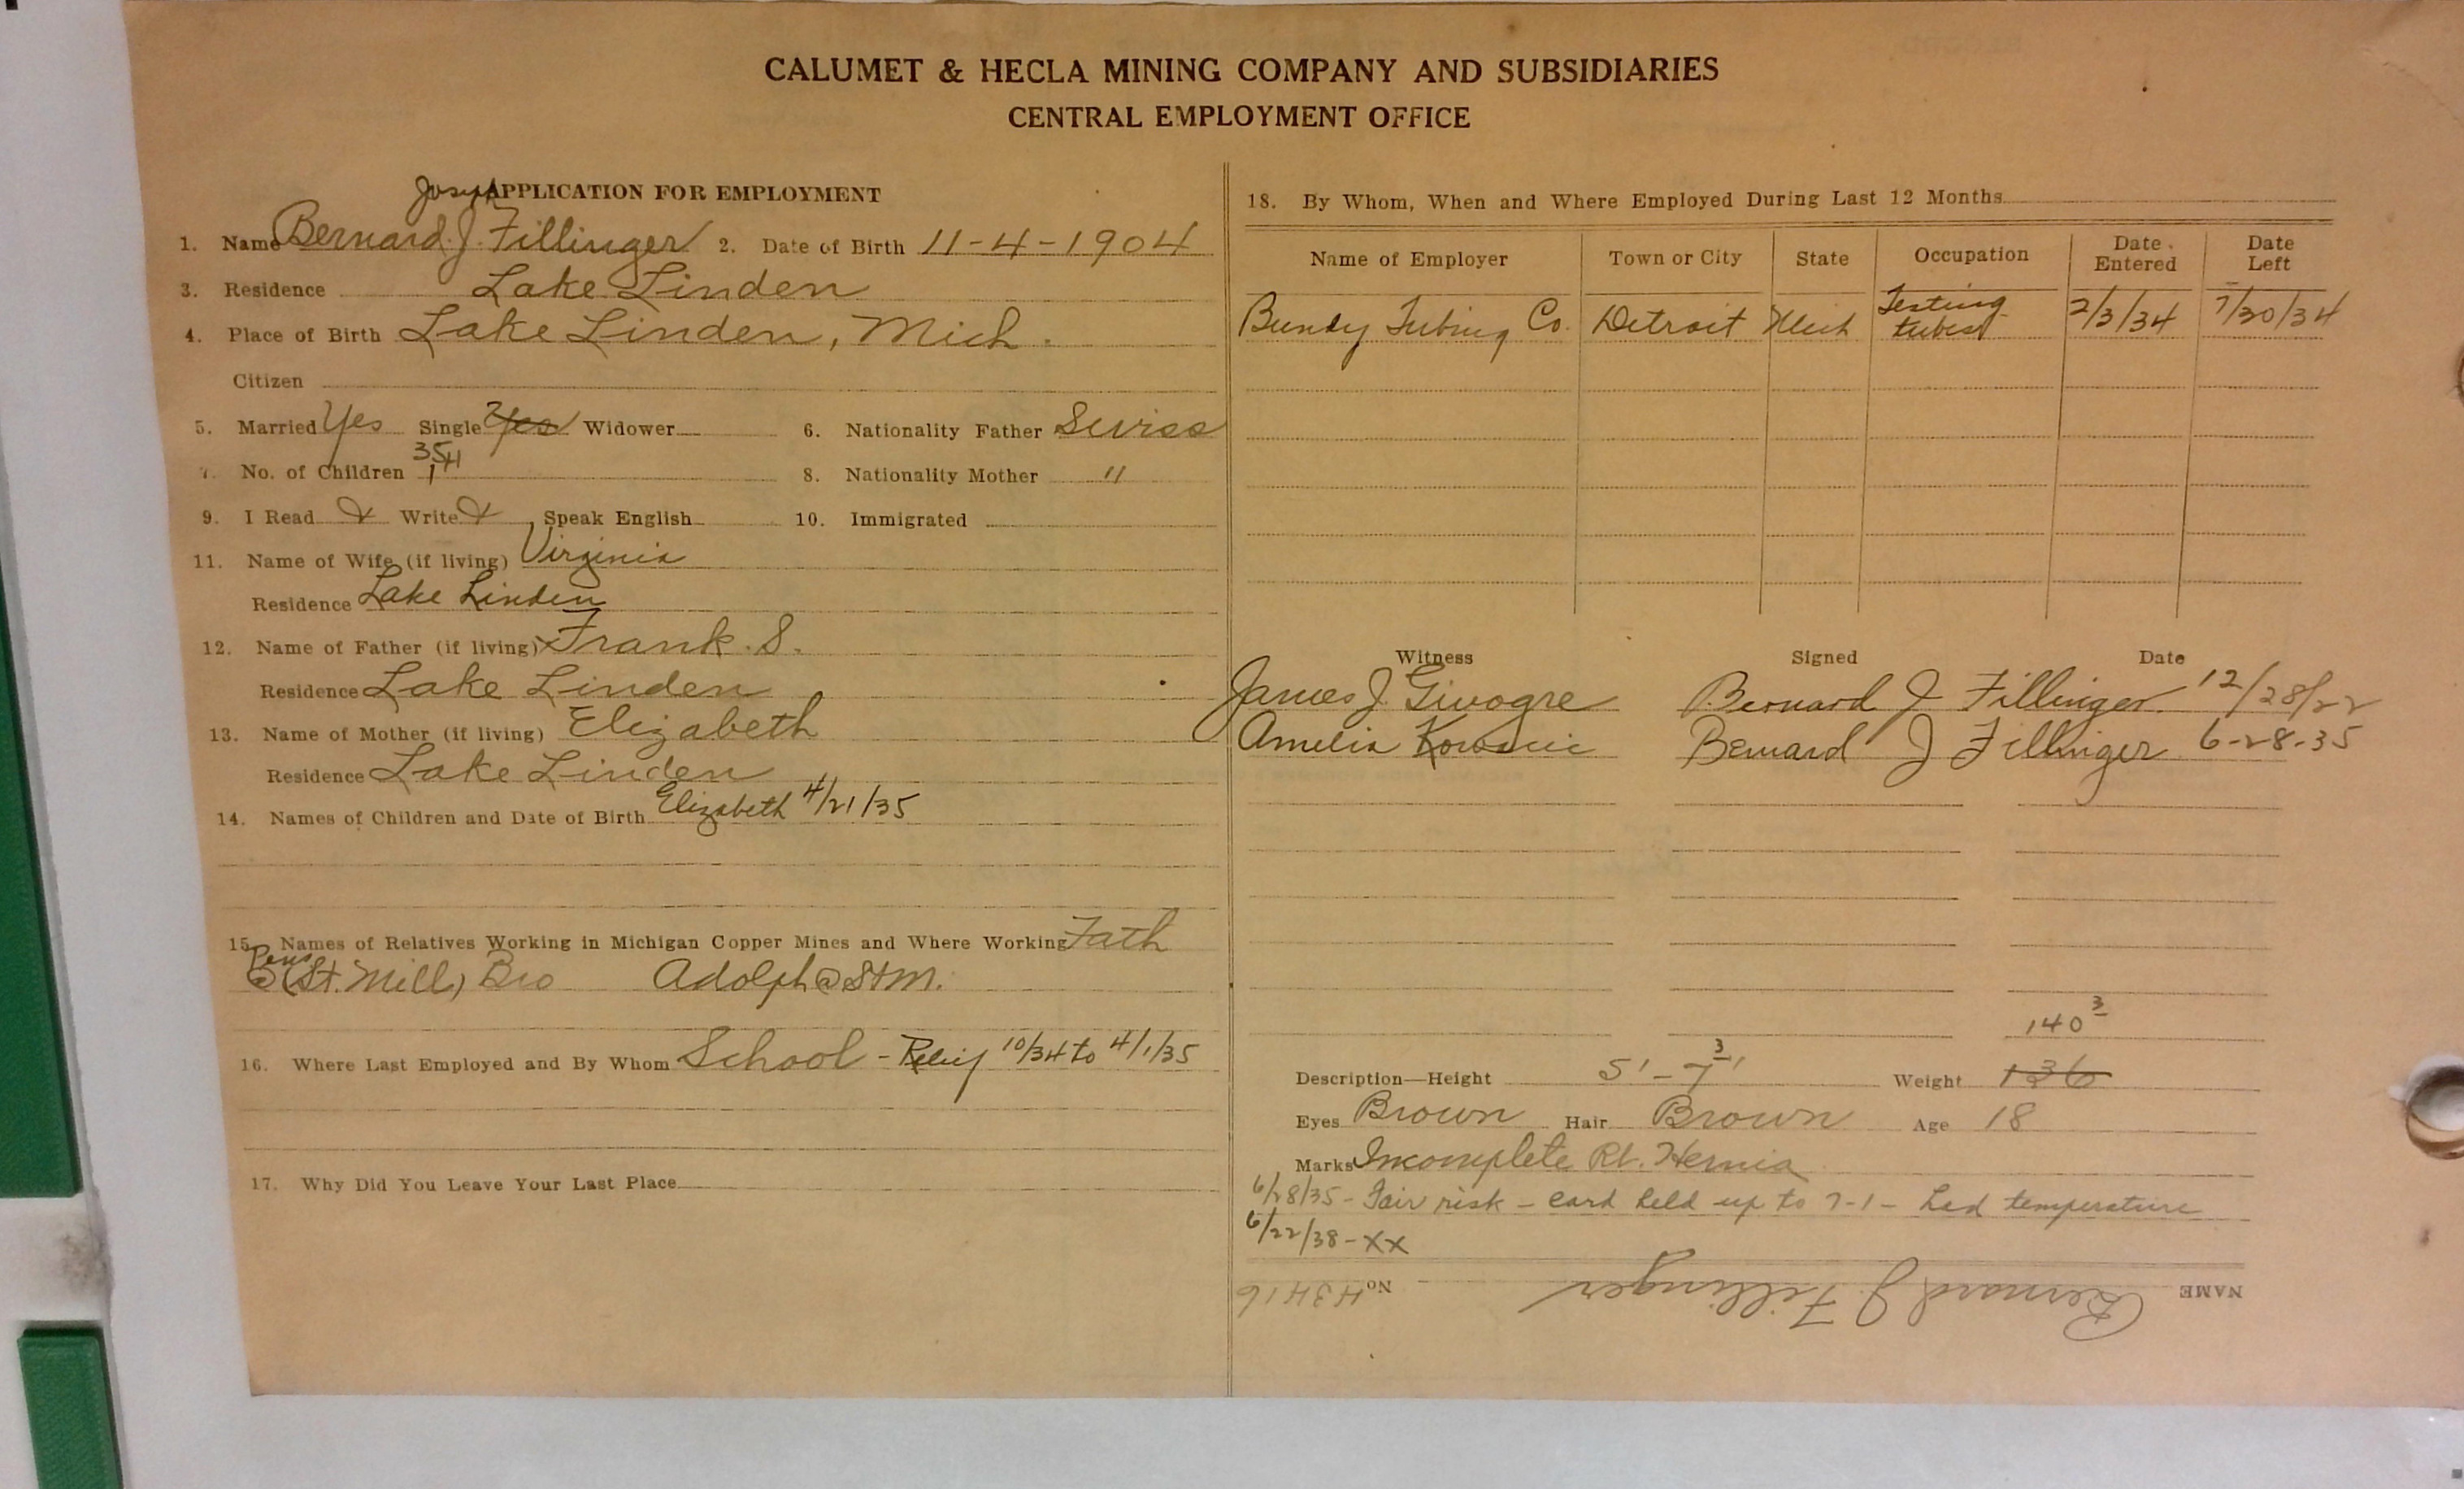 CALUMET & HECLA MINING COMPANY AND SUBSIDIARIES
CENTRAL EMPLOYMENT OFFICE
Joseph
APPLICATION FOR EMPLOYMENT
1. Name Bernard J. Fillinger 2. Date of Birth 11-4-1904
3. Residence Lake Linden
4. Place of Birth Lake Linden, Mich.
Citizen
5. Married Yes Single Yes Widower 6. Nationality Father Swiss
7. No. of Children 1 8. Nationality Mother "
9. I Read & Write & Speak English 10. Immigrated
11. Name of Wife (if living) Virginia
Residence Lake Linden
12. Name of Father (if living) Frank S.
Residence Lake Linden
13. Name of Mother (if living) Elizabeth
Residence Lake Linden
14. Names of Children and Date of Birth Elizabeth 4/21/35
15. Names of Relatives Working in Michigan Copper Mines and Where Working Fath
(St. Mill) Bro Adolph @ St M.
16. Where Last Employed and By Whom School - Relief 10/34 to 4/1/35
17. Why Did You Leave Your Last Place
18. By Whom, When and Where Employed During Last 12 Months
Name of Employer Town or City State Occupation Date Entered Date Left
Bundy Tubing Co. Detroit Mich Testing tubes 2/3/34 7/30/34
Witness Signed Date
James J. Givogre Bernard J Fillinger 12/28/22
Amelia Bernard J Fillinger 6-28-35
140 3
Description—Height 5'-7 3" Weight 136
Eyes Brown Hair Brown Age 18
Marks Incomplete Rt. Hernia
6/28/35 - Fair risk - card held up to 7-1 - had temperature
6/22/38 - XX
NAME Bernard J. Fillinger No H3H16